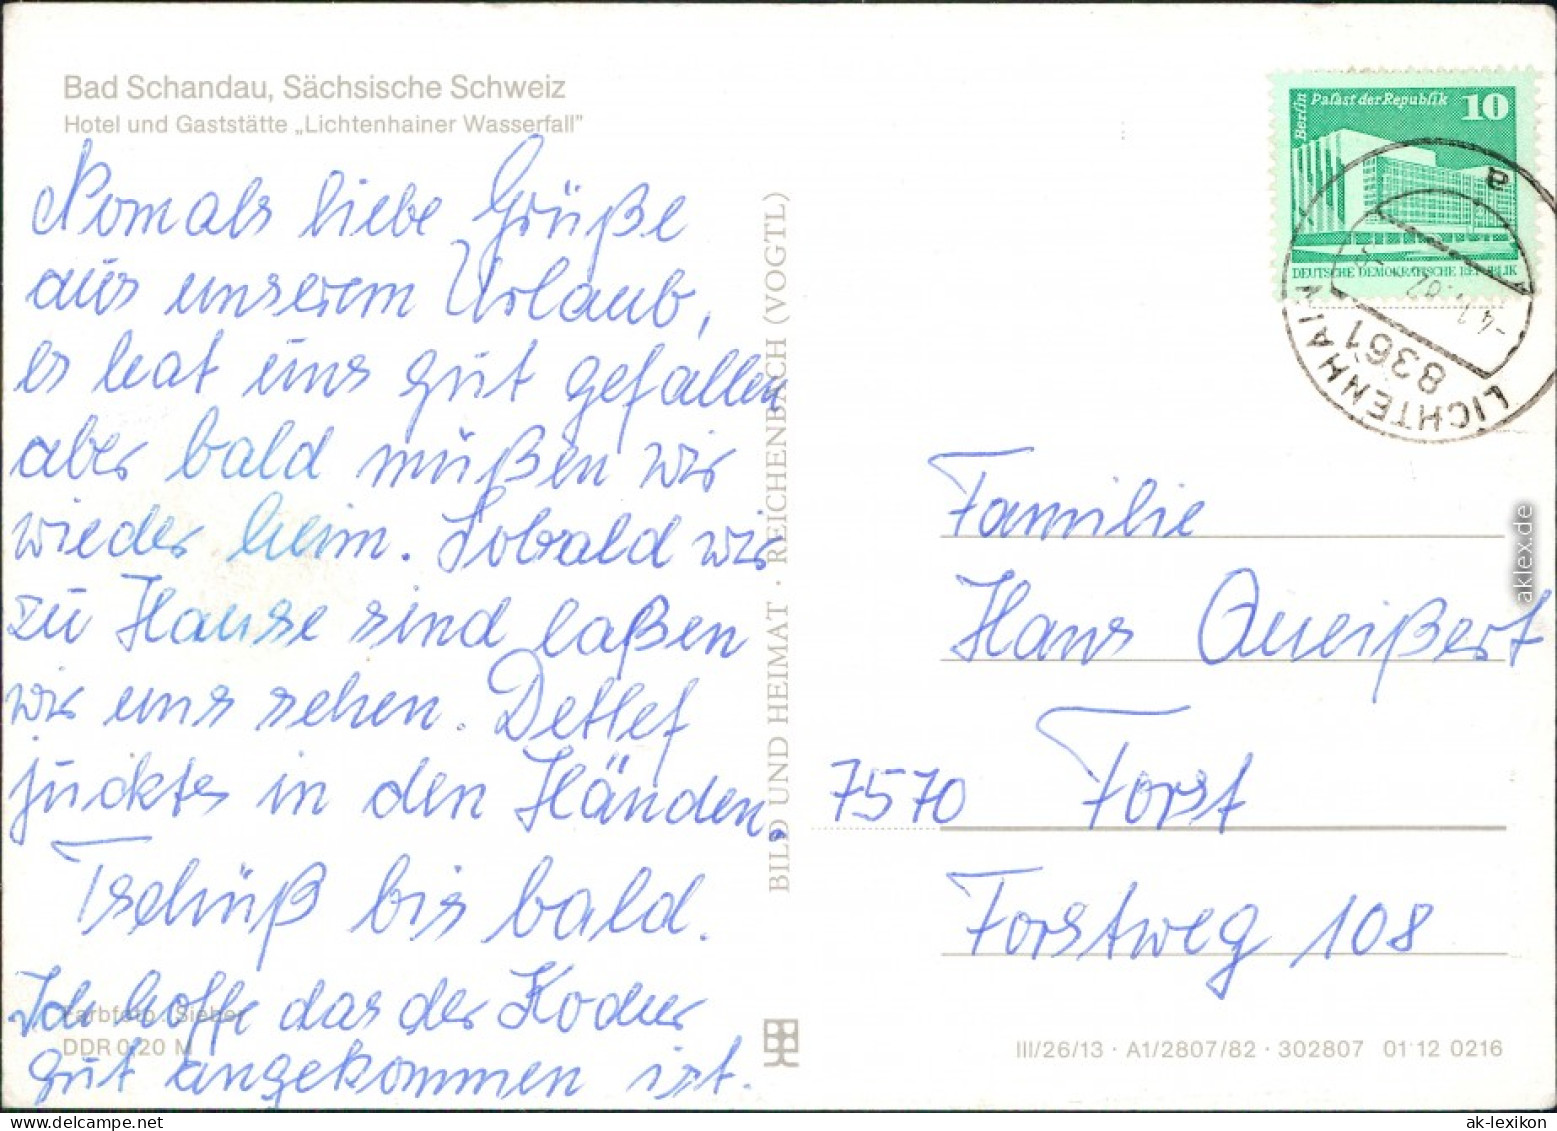 Bad Schandau, Sächsische Schweiz
Hotel und Gaststätte „Lichtenhainer Wasserfall"
Nomals liebe Grüße
aus unserem Urlaub,
es hat uns gut gefallen
aber bald müßen wir
wieder heim. Sobald wir
zu Hause sind laßen
wir uns sehen. Detlef
juckts in den Händen.
Tschüß bis bald.
Ich hoffe das der
gut angekommen ist.
Farbfoto: Sieber
DDR 0,20 M
BILD UND HEIMAT · REICHENBACH (VOGTL)
Berlin
Palast der Republik
10
DEUTSCHE DEMOKRATISCHE REPUBLIK
LICHTENHAIN
8361
a
Familie
Hans Queißert
7570 Forst
Forstweg 108
III/26/13 · A1/2807/82 · 302807 01 12 0216
aklex.de
www.delcampe.net
ak-lexikon